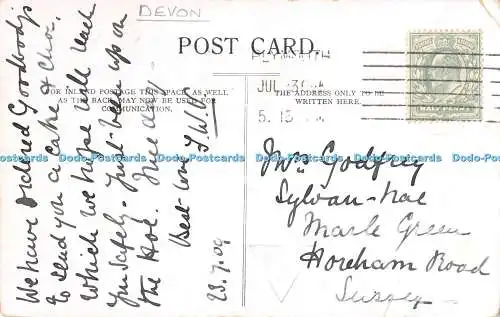 DEVON
POST CARD.
FOR INLAND POSTAGE THIS SPACE, AS WELL
AS THE BACK, MAY NOW BE USED FOR
COMMUNICATION.
THE ADDRESS ONLY TO BE
WRITTEN HERE.
PLYMOUTH
JUL 31
5. 15
We have ordered Goodbody's
to send you a cake & choc.
which we hope will reach
you safely. Just been up on
the Hoe.
Best love
23.7.09
Mrs Godfrey
Sylvan-
Marle Green
Horeham Road
Sussex
Dodo-Postcards Dodo-Postcards Dodo-Postcards Dodo-Postcards Dodo-Postcards